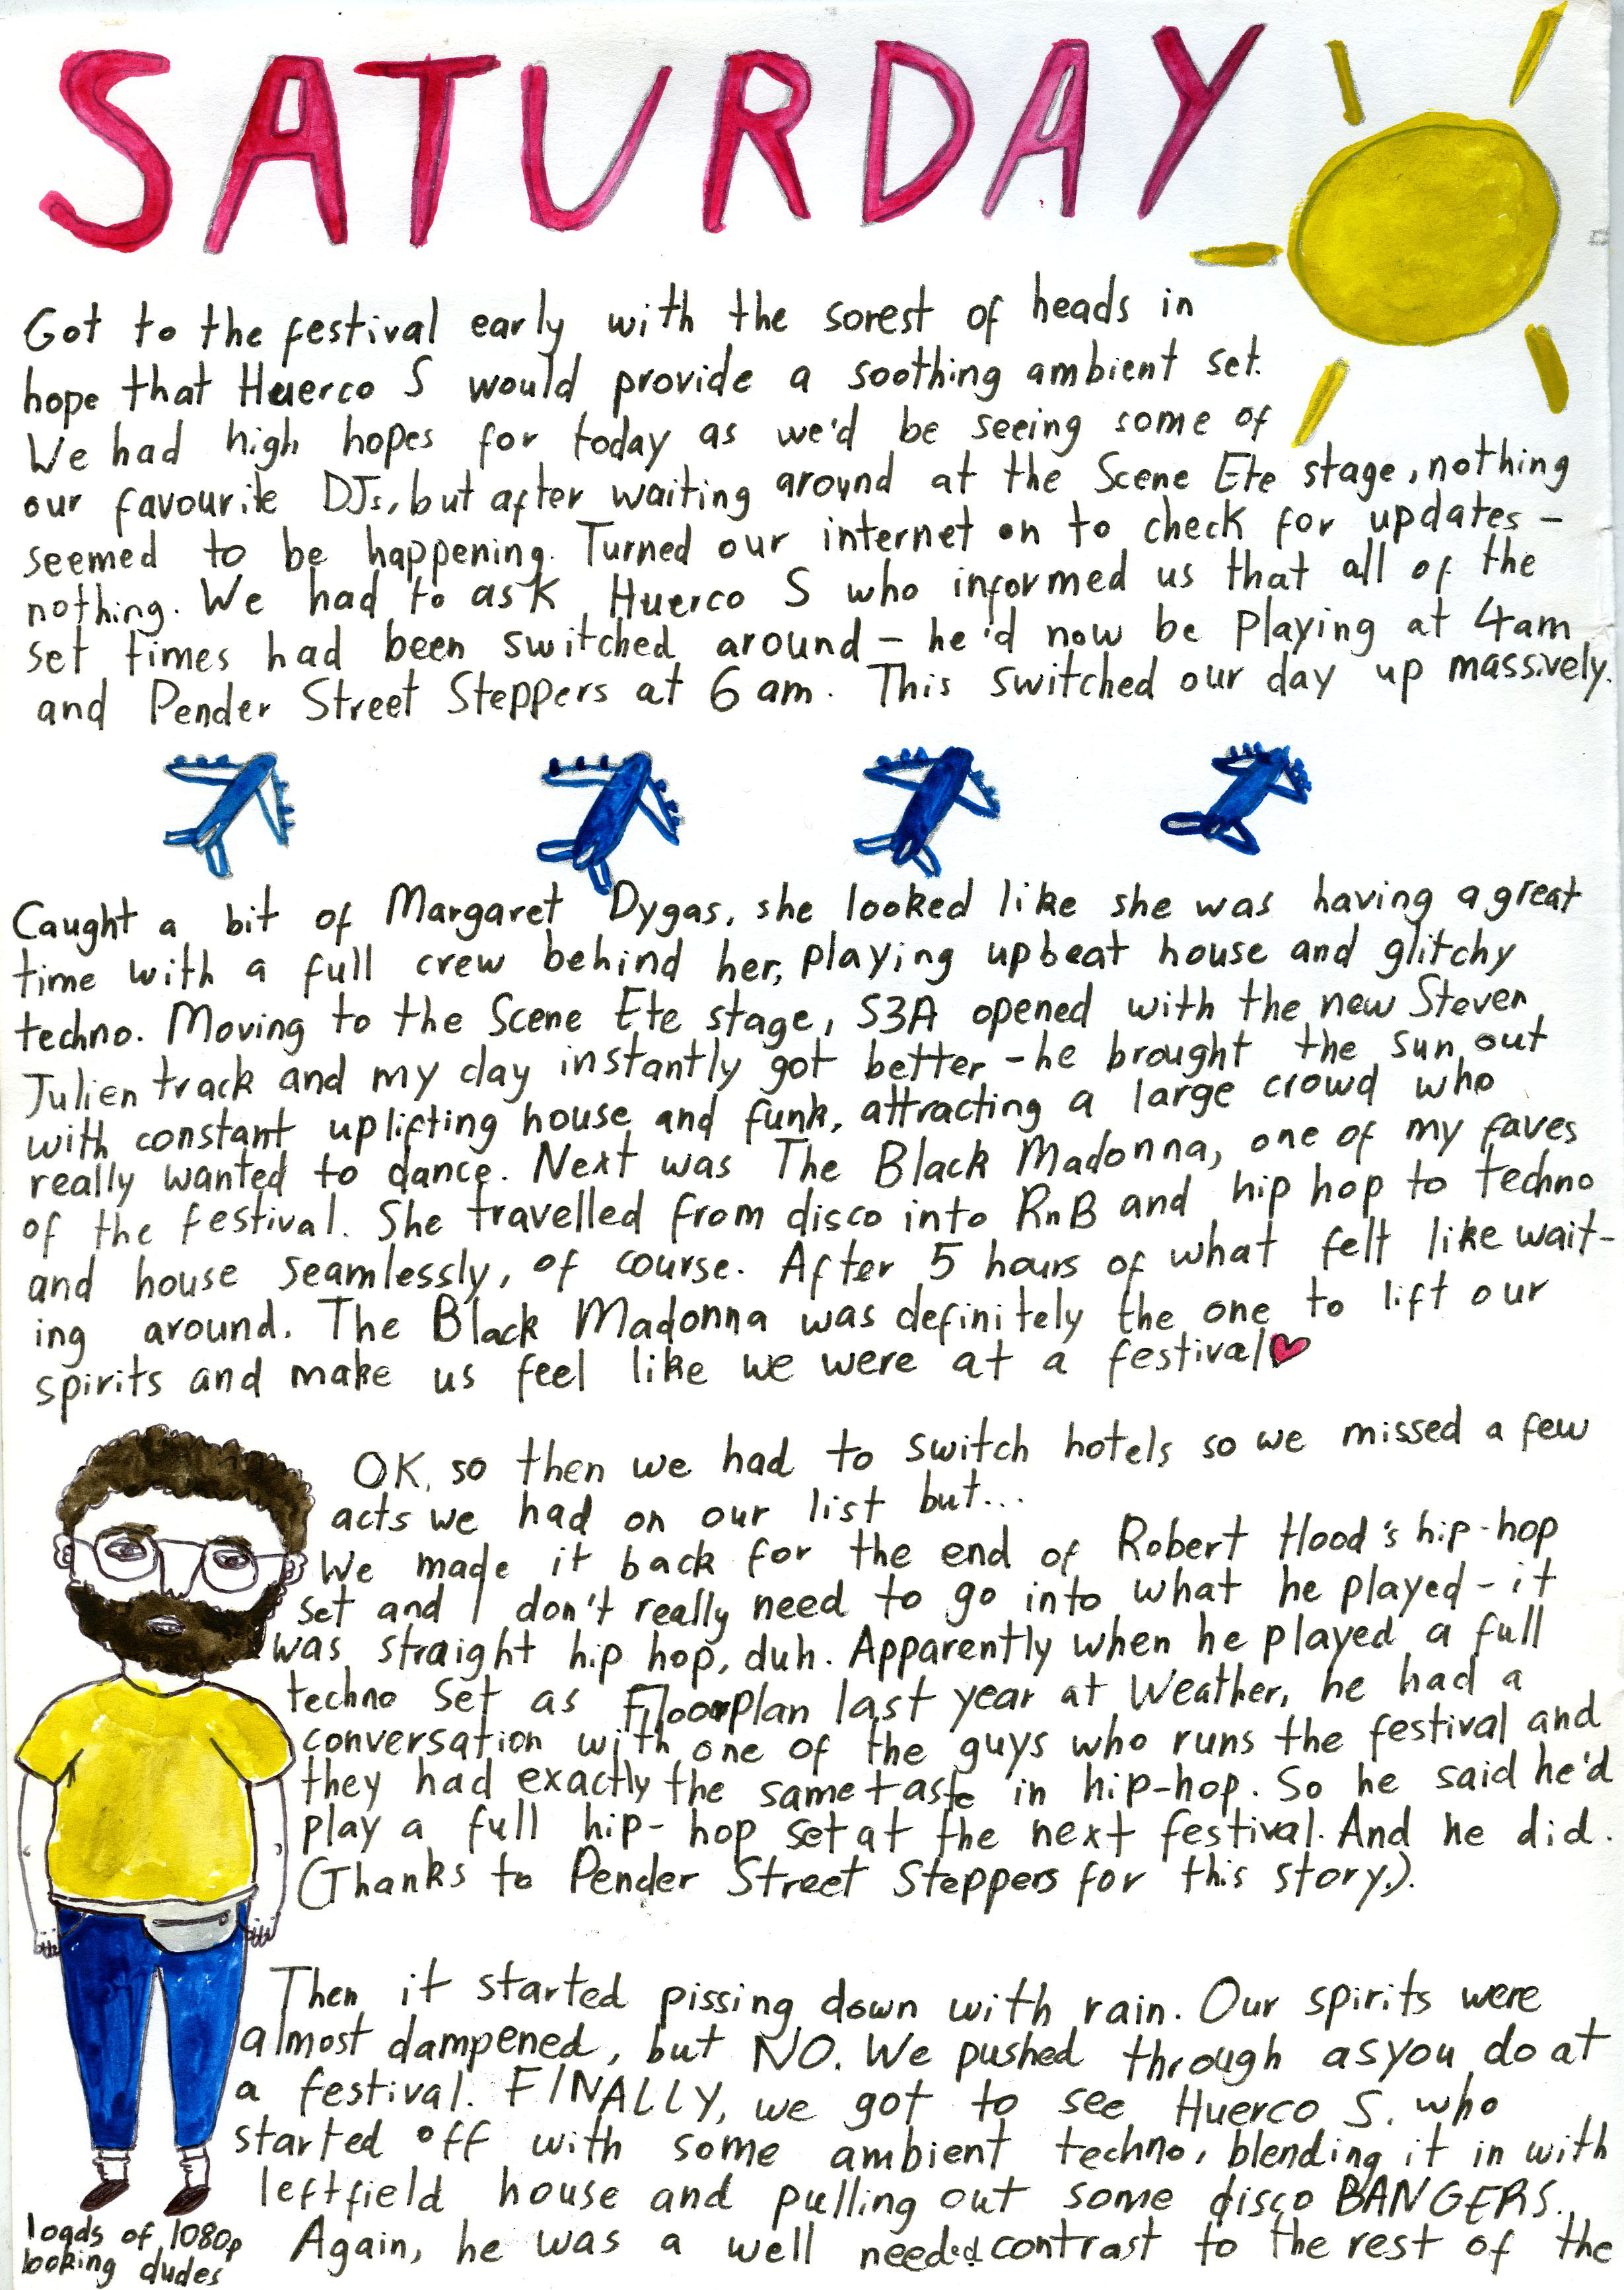 SATURDAY
Got to the festival early with the sorest of heads in
hope that Huerco S would provide a soothing ambient set.
We had high hopes for today as we'd be seeing some of
our favourite DJs, but after waiting around at the Scene Ete stage, nothing
seemed to be happening. Turned our internet on to check for updates -
nothing. We had to ask Huerco S who informed us that all of the
set times had been switched around - he'd now be playing at 4am
and Pender Street Steppers at 6am. This switched our day up massively.
Caught a bit of Margaret Dygas, she looked like she was having a great
time with a full crew behind her, playing upbeat house and glitchy
techno. Moving to the Scene Ete stage, S3A opened with the new Steven
Julien track and my day instantly got better - he brought the sun out
with constant uplifting house and funk, attracting a large crowd who
really wanted to dance. Next was The Black Madonna, one of my faves
of the festival. She travelled from disco into RnB and hip hop to techno
and house seamlessly, of course. After 5 hours of what felt like wait-
ing around. The Black Madonna was definitely the one to lift our
spirits and make us feel like we were at a festival
OK, so then we had to switch hotels so we missed a few
acts we had on our list but...
We made it back for the end of Robert Hood's hip-hop
set and I don't really need to go into what he played - it
was straight hip hop, duh. Apparently when he played a full
techno set as Floorplan last year at Weather, he had a
conversation with one of the guys who runs the festival and
they had exactly the same taste in hip-hop. So he said he'd
play a full hip-hop set at the next festival. And he did.
(Thanks to Pender Street Steppers for this story.).
Then it started pissing down with rain. Our spirits were
almost dampened, but NO. We pushed through as you do at
a festival. FINALLY, we got to see Huerco S. who
started off with some ambient techno, blending it in with
leftfield house and pulling out some disco BANGERS.
Again, he was a well needed contrast to the rest of the
loads of 1080p
looking dudes